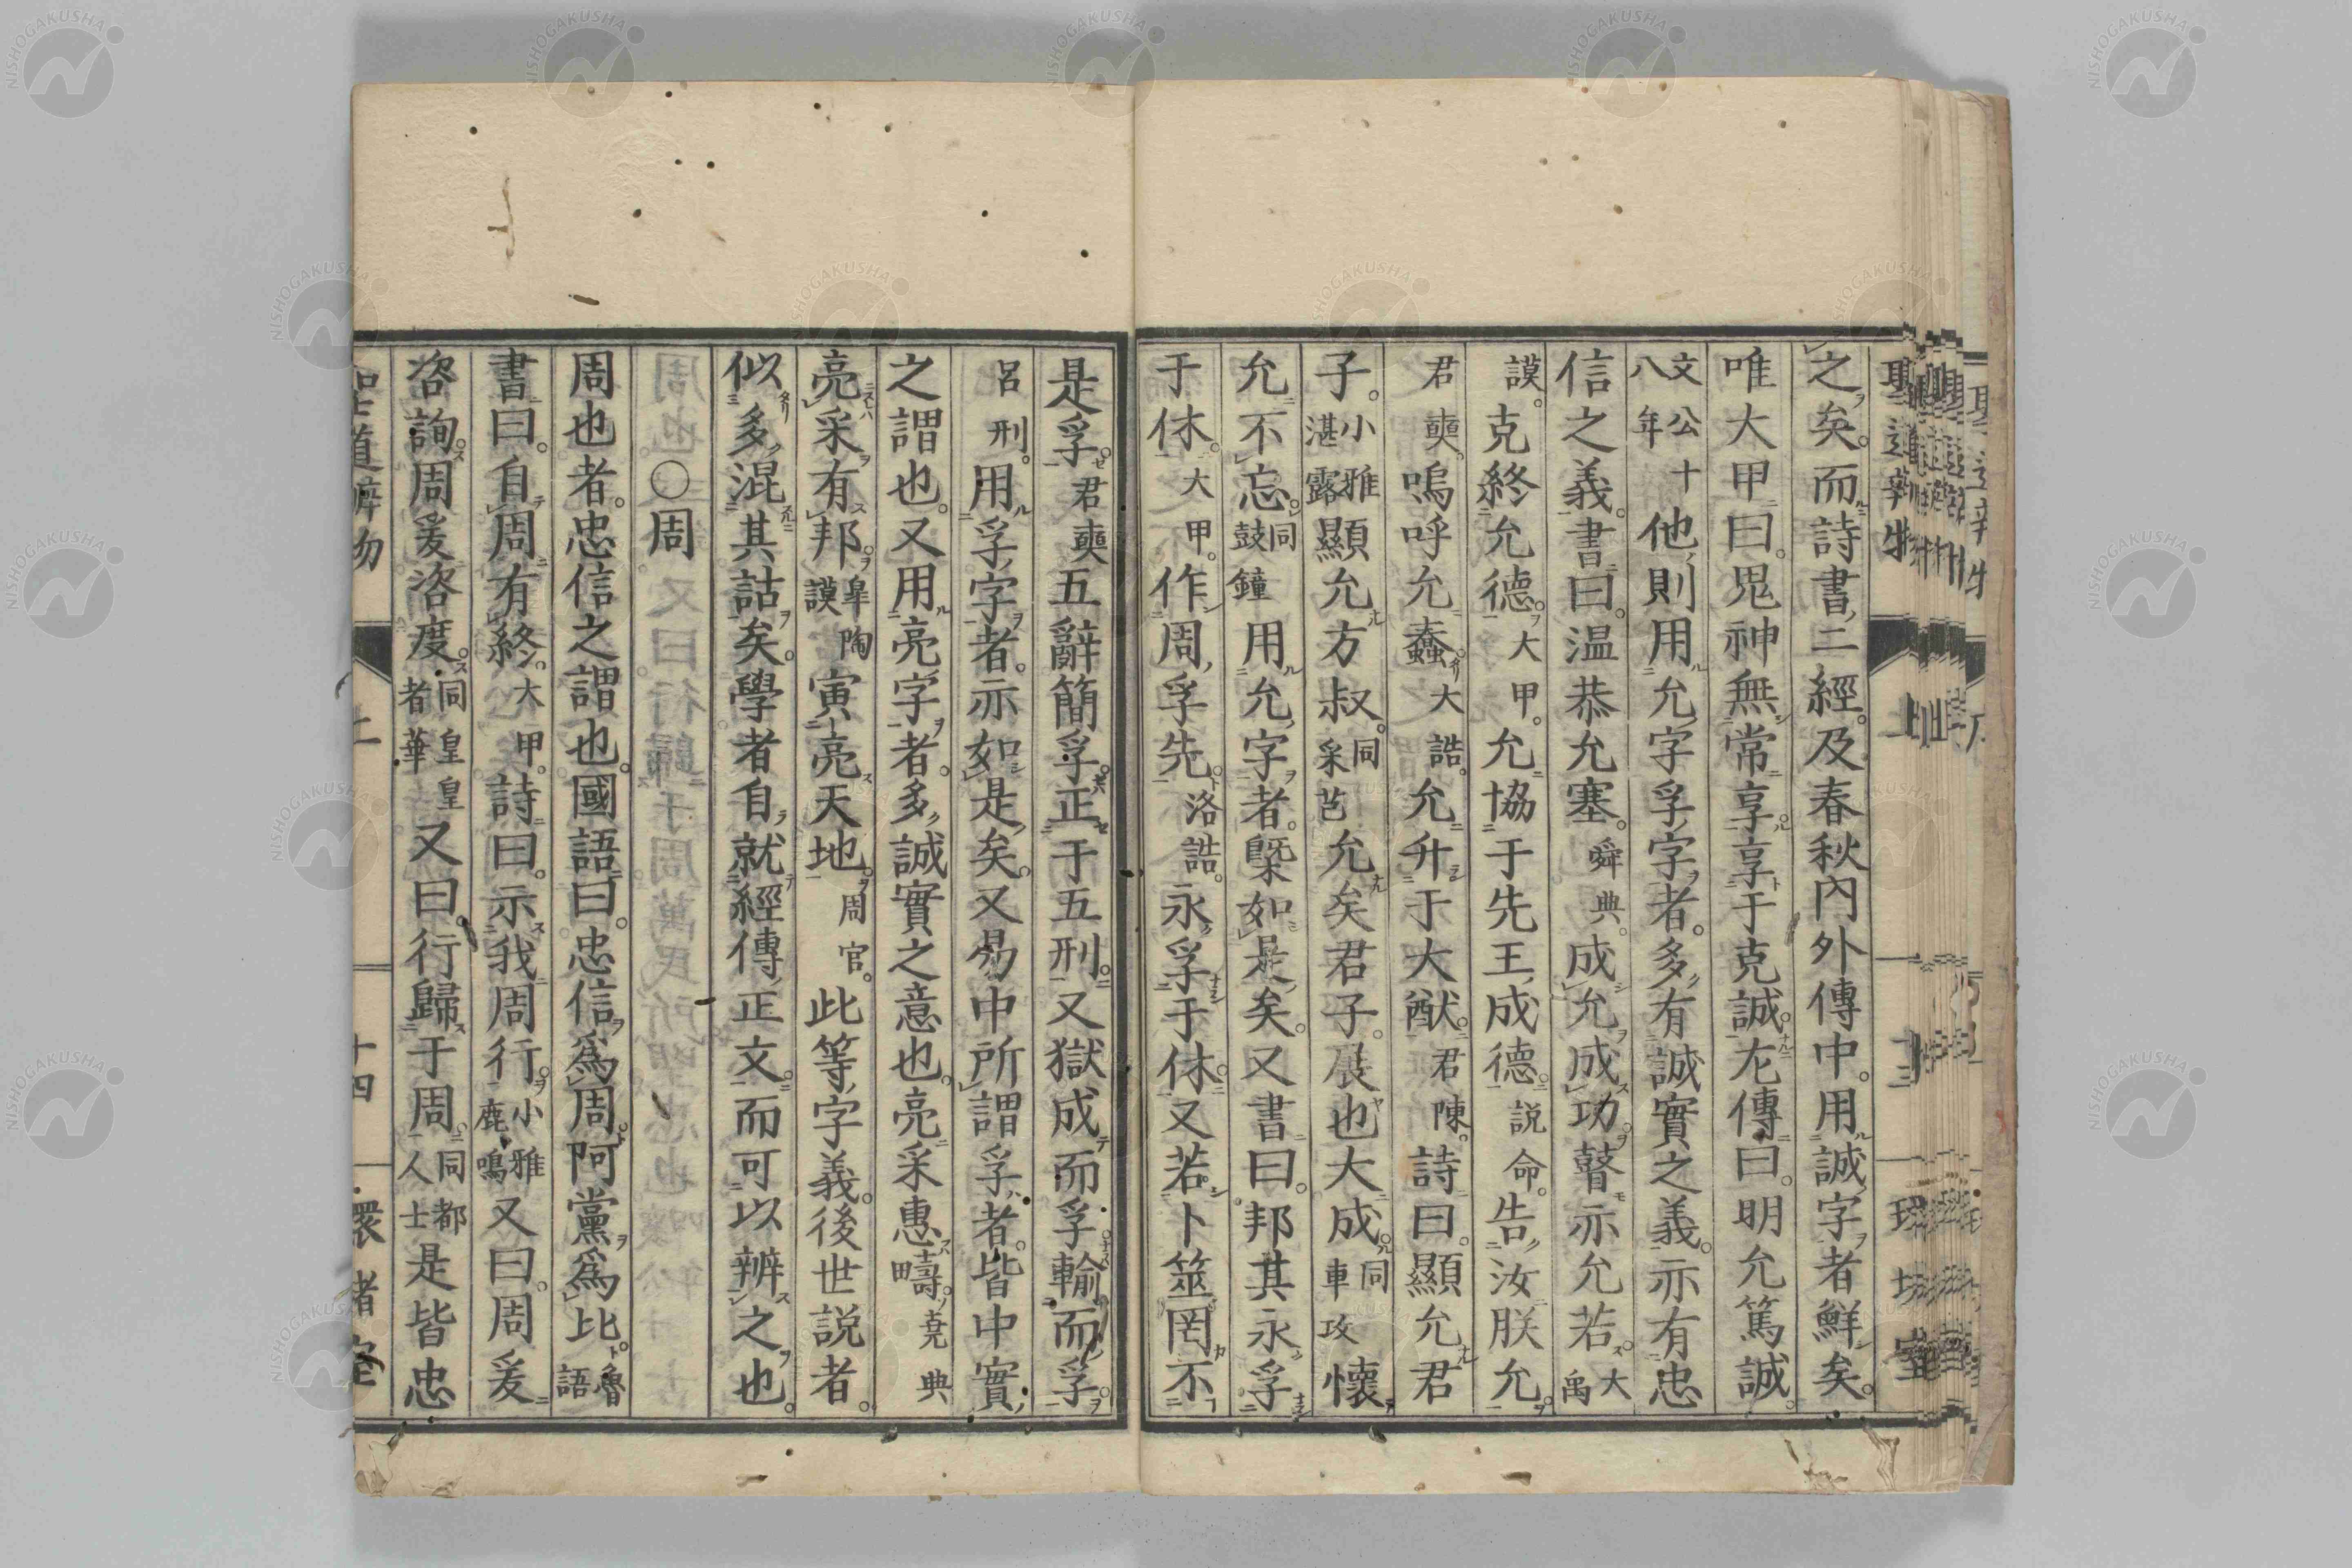 之矣。而詩書二經。及春秋內外傳中。用誠字者鮮矣。
唯大甲曰。鬼神無常享。享于克誠。左傳曰。明允篤誠。
文公十八年他則用允字孚字者。多有誠實之義。亦有忠
信之義。書曰。温恭允塞。舜典。成允成功。瞽亦允若。大禹
謨。克終允德。大甲。允協于先王成德。説命。告汝朕允。
君奭。嗚呼允蠢。大誥。允升于大猷。君陳。詩曰。顯允君
子。小雅湛露顯允方叔。同采芑允矣君子。展也大成。同車攻懷
允不忘。同鼓鐘用允字者。槩如是矣。又書曰。邦其永孚
于休。大甲。作周孚先。洛誥。永孚于休。又若卜筮罔不
是孚。君奭五辭簡孚。正于五刑。又獄成而孚。輸而孚。
呂刑。用孚字者。亦如是矣。又易中所謂孚者。皆中實
之謂也。又用亮字者。多誠實之意也。亮采惠疇。堯典
亮采有邦。皐陶謨寅亮天地。周官。此等字義。後世説者。
似多混其詁矣。學者自就經傳正文。而可以辨之也。
○周
周也者。忠信之謂也。國語曰。忠信爲周。阿黨爲比。魯語
書曰。自周有終。大甲。詩曰。示我周行。小雅鹿鳴又曰。周爰
咨詢。周爰咨度。同皇皇者華又曰。行歸于周。同都人士是皆忠
聖道辨物
上
十四
環堵室
聖道辨物
上
環堵室